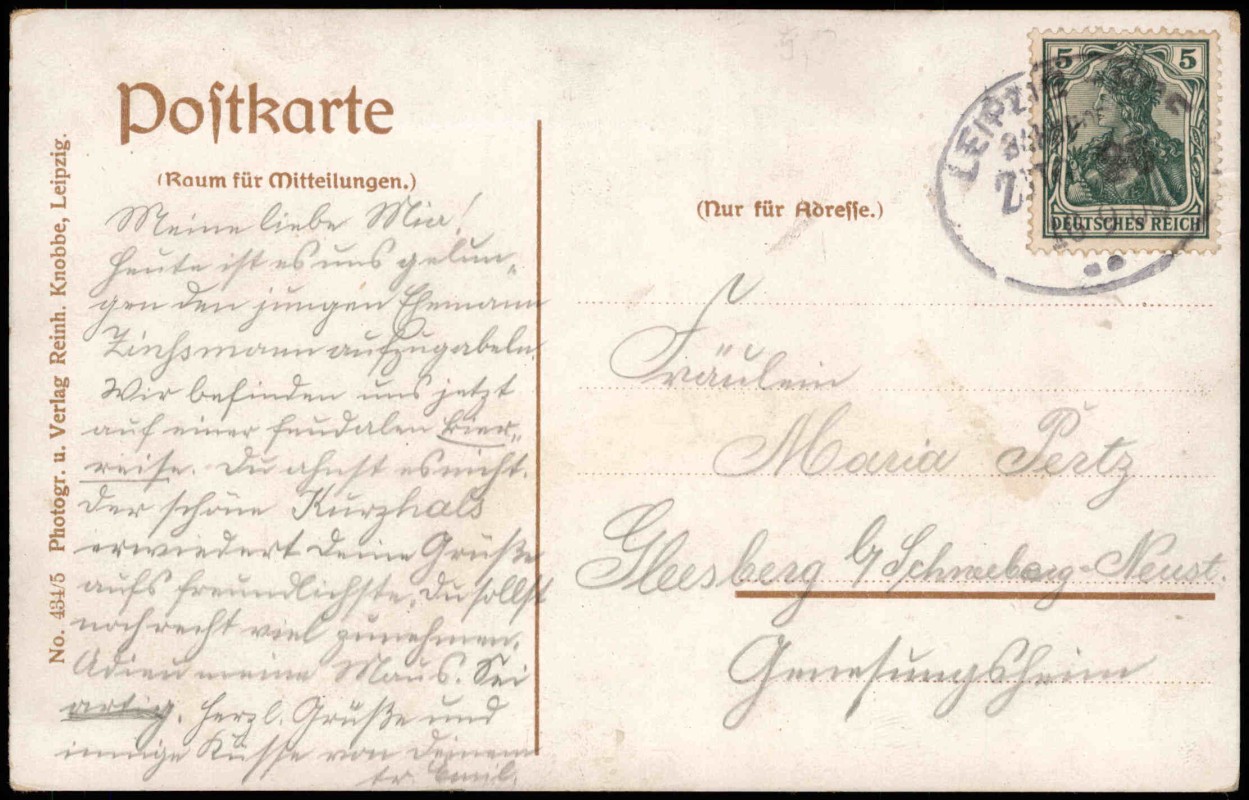 Postkarte
(Raum für Mitteilungen.)
(Nur für Adresse.)
No. 434/5 Photogr. u. Verlag Reinh. Knobbe, Leipzig.
5 5
DEUTSCHES REICH
LEIPZIG
Meine liebe Mia!
Heute ist es uns gelun-
gen den jungen Ehemann
Zinssmann aufzugabeln.
Wir befinden uns jetzt
auf einer feudalen Bier-
reise. Du ahnst es nicht.
Der schöne Kurzhals
erwiedert Deine Grüße
aufs freundlichste. Du sollst
noch recht viel zunehmen.
Adieu meine Maus. Sei
artig. Herzl. Grüße und
innige Küsse von Deinem
tr. Emil.
Fräulein
Maria Pertz
Gleesberg b/ Schneeberg-Neust.
Genesungsheim